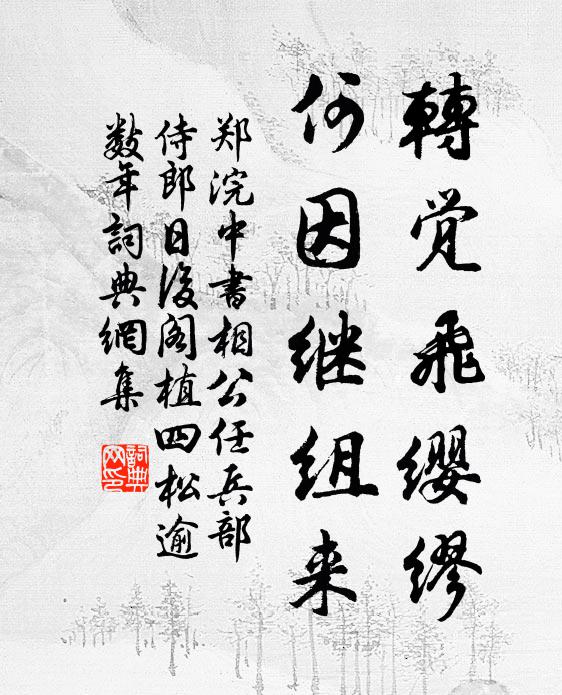 轉觉飛缨繆
何因继组来
郑浣中書相公任兵部
侍郎日後阁植四松逾
数年詞典網集
詞典网印